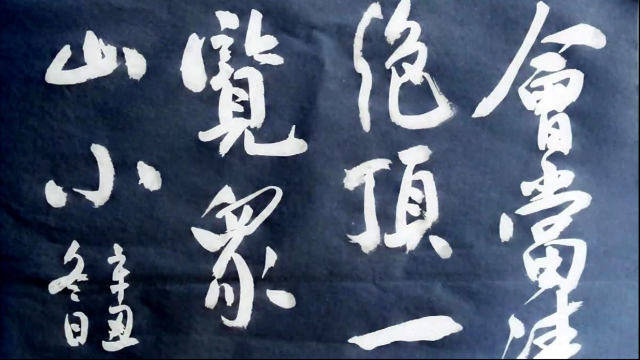 會當凌
絕頂一
覽眾
山小
辛丑
冬日